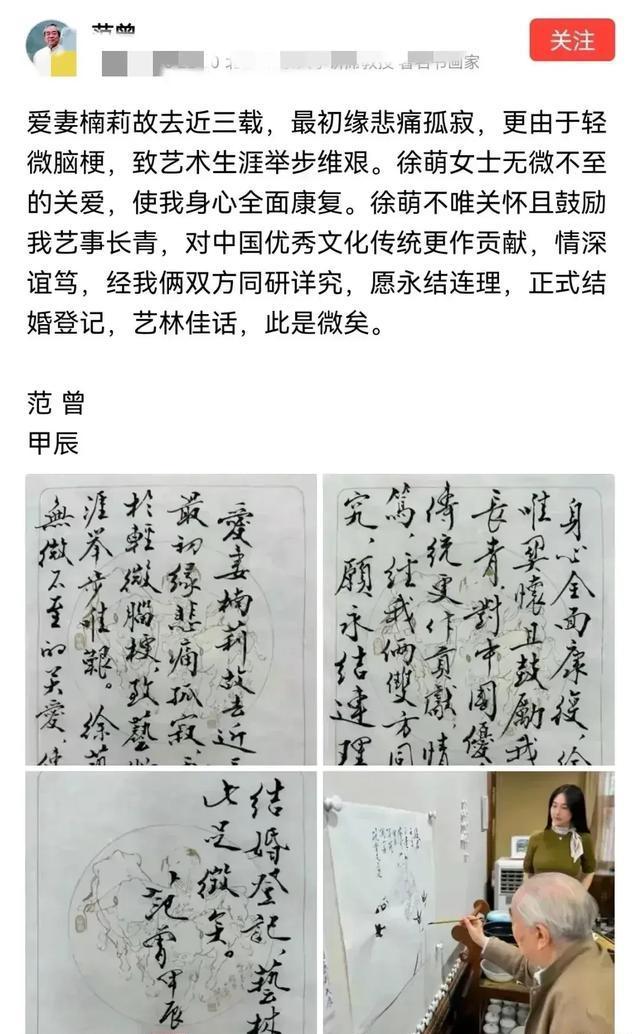 范曾
关注
席教授 著名书画家
爱妻楠莉故去近三载，最初缘悲痛孤寂，更由于轻
微脑梗，致艺术生涯举步维艰。徐萌女士无微不至
的关爱，使我身心全面康复。徐萌不唯关怀且鼓励
我艺事长青，对中国优秀文化传统更作贡献，情深
谊笃，经我俩双方同研详究，愿永结连理，正式结
婚登记，艺林佳话，此是微矣。
范 曾
甲辰
愛妻楠莉故去近三
最初缘悲痛孤寂，
於輕微腦梗，致藝
涯举步惟艱。徐萌
無微不至的关爱，使
身心全面康復，徐
唯関懷且鼓勵我
長青，對中國優
傳統更作貢獻，情
篤，經我俩雙方同
究，願永结連理
结婚登记，藝林
此足徵矣。
范曾甲辰